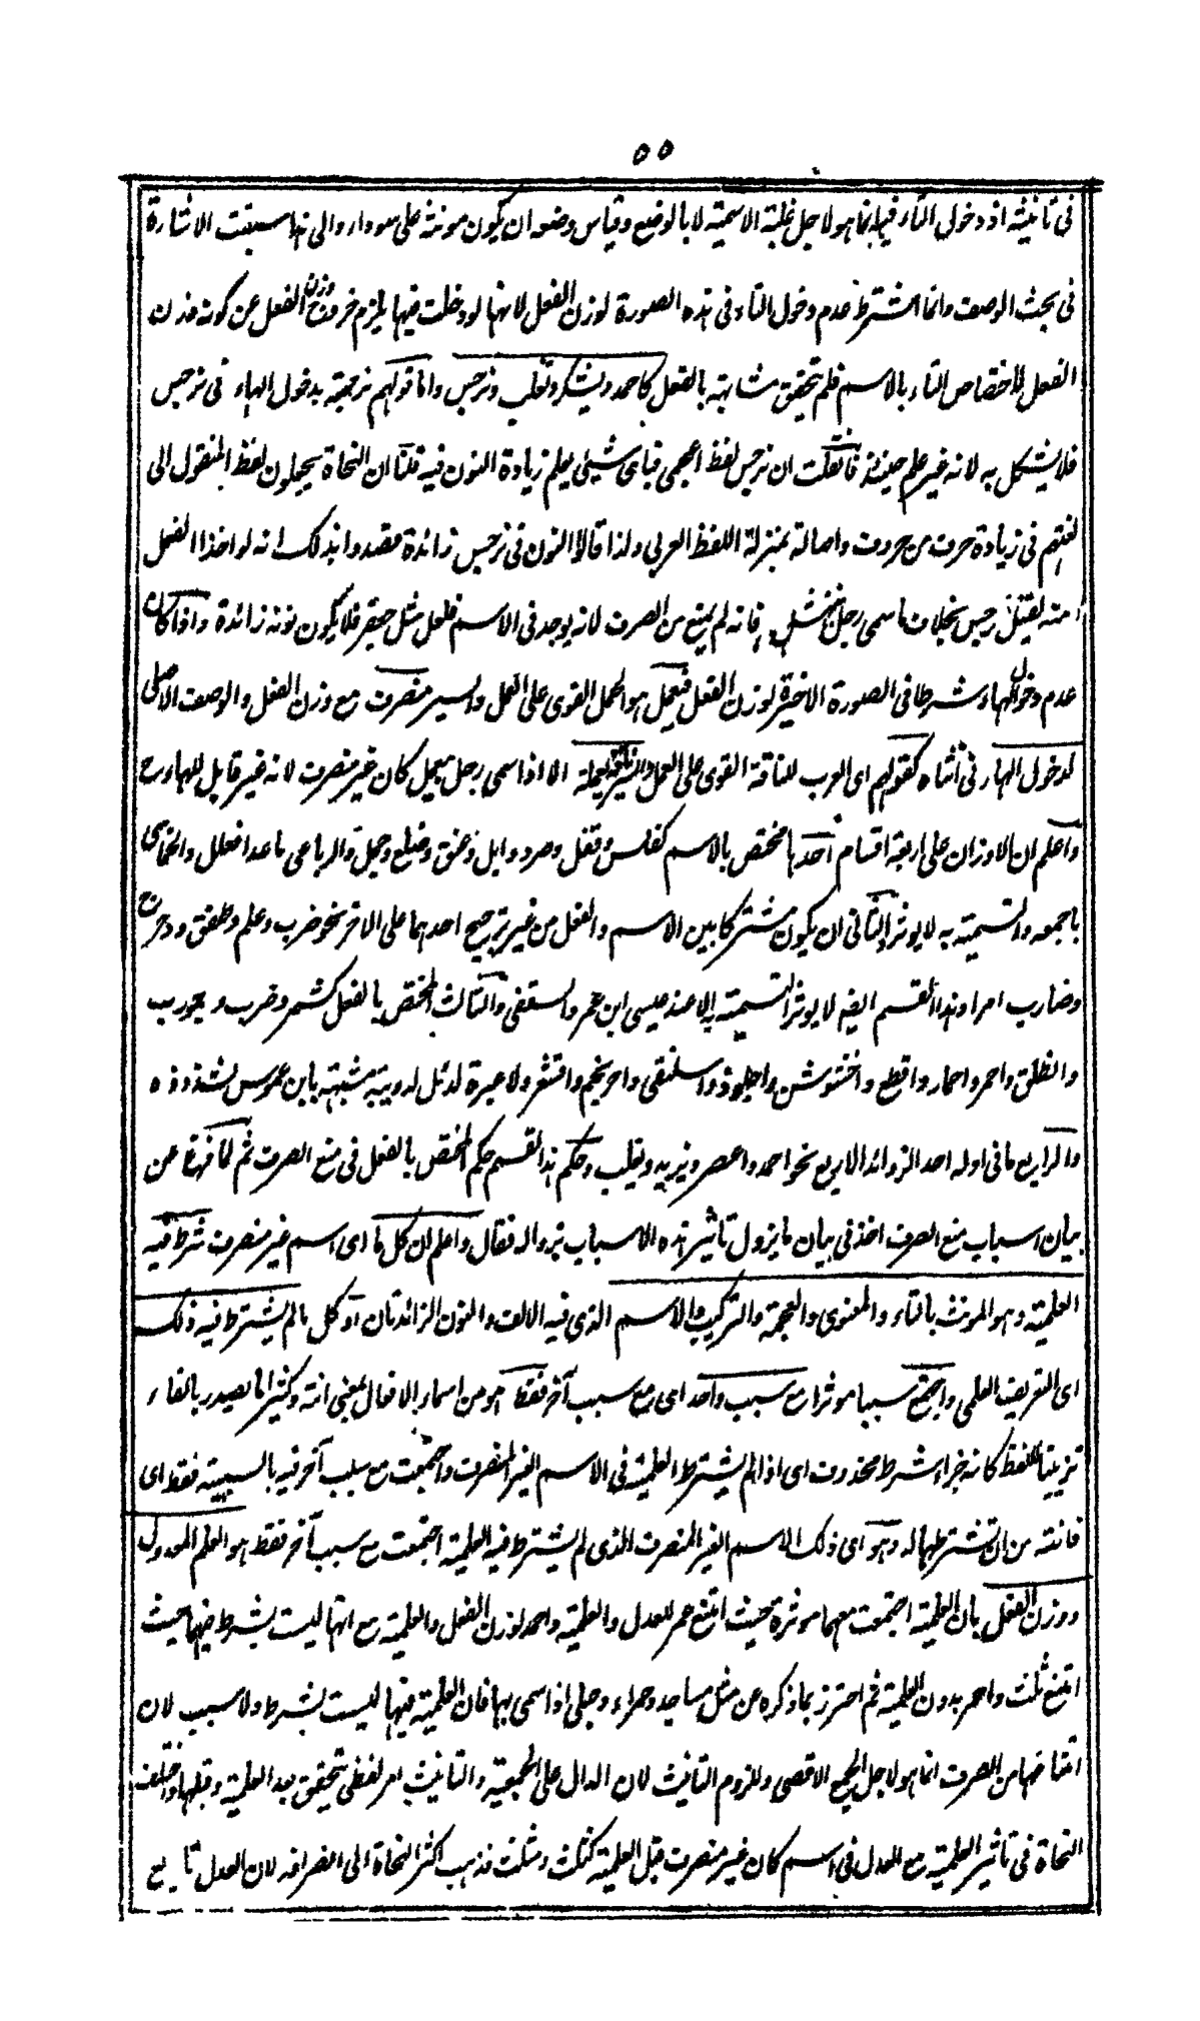 ٥٥
فى تانيثه اذ دخول التاء فيها انما هو لاجل غلبة الاسمية لا بالوضع وقياس وضعه ان يكون مونثه على سوداء والى هذا سبقت الاشارة
فى بحث الوصف وانما اشترط عدم دخول التاء فى هذه الصورة لوزن الفعل لانها لو دخلت فيها يلزم خروج وزن الفعل عن كونه وزن
الفعل لاختصاص التاء بالاسم فلم تحقق مشابهته بالفعل كاحمد ويشكر وتغلب ونرجس واما قولهم نرجسة بدخول الهاء فى نرجس
فلا يشكل به لانه غير علم حينئذ فان قلت ان نرجس لفظ اعجمى فباى شيئى يعلم زيادة النون فيه قلنا ان النحاة يجعلون لفظ المنقول الى
لغتهم فى زيادة حرف من حروف واصالته بمنزلة اللفظ العربى ولذا قالوا النون فى نرجس زائدة مقصدوا بذلك انه لو اخذ الفعل
منه لقيل نرجس بخلاف ما سمى رجل بنهشل فانه لم يمنع من الصرف لانه يوجد فى الاسم فعلل مثل جعفر فلا يكون نونه زائدة واذا كان
عدم دخول الهاء شرطا فى الصورة الاخيرة لوزن الفعل فيعمل هو الجمل القوى على العمل والسير منصرف مع وزن الفعل والوصف الاصلى
لدخول الهاء فى انثاه كقولهم اى العرب للناقة القوى على العمل والسير ناقة يعملة الا اذا سمى رجل بيعمل كان غير منصرف لانه غير قابل للهاء ح
واعلم ان الاوزان على اربعة اقسام احدها مختص بالاسم كفلس وقفل وصرد وابل وعنق وضلع وجمل والرباعى ما عدا فعلل والخماسى
باجمعه والتسمية به لا يوثر الثانى ان يكون مشتركا بين الاسم والفعل من غير ترجيح احدهما على الاخر نحو ضرب وعلم وظفق ودحرج
وضارب امرا وهذا القسم ايضا لا يوثر التسمية به الا عند عيسى ابن عمر والثقفى والثالث المختص بالفعل كشمر وضرب وجورب
وانطلق واحمر واحمار واقطع واخشوشن واجلوذ واسلنقى واحرنجم واقشعر ولا عبرة لدئل لدويبة مشبهة بابن عرس لشذوذه
والرابع ما فى اوله احد الزوائد الاربع نحو احمد واعصر ويزيد وتغلب وحكم هذا القسم حكم المختص بالفعل فى منع الصرف ثم لما فرغ عن
بيان اسباب منع الصرف اخذ فى بيان ما يزول تاثير هذه الاسباب بزواله فقال واعلم ان كل ما اى اسم غير منصرف شرط فيه
العلمية وهو المونث بالتاء والمعنوى والعجمة والتركيب والاسم الذى فيه الالف والنون الزائدتان او كل ما لم يشترط فيه ذلك
اى التعريف العلمى واجتمع سببا موثرا مع سبب واحد اى مع سبب آخر فقط هو من اسماء الافعال بمعنى انته وكثيرا ما يصدر بالفاء
تزيينا للفظ كانه جزاء شرط محذوف اى اذا لم يشترط العلمية فى الاسم الغير المنصرف واجتمعت مع سبب آخر فيه بالسببية فقط اى
فانته من ان تشترطها له وهو اى ذلك الاسم الغير المنصرف الذى لم يشترط فيه العلمية اجتمعت مع سبب آخر فقط هو العلم المعدول
ووزن الفعل بان العلمية اجتمعت معهما موثرة بحيث امتنع عمر للعدل والعلمية واحمد لوزن الفعل والعلمية مع انها ليست بشرط فيهما حيث
امتنع ثلث واحمر بدون العلمية ثم احترز بما ذكره عن مثل مساجد وحمراء وحبلى اذا سمى بها فان العلمية فيها ليست بشرط ولا سبب لان
امتناعها من الصرف انما هو لاجل الجمع الاقصى ولزوم التانيث لان الدال على الجمعية والتانيث امر لفظى تحقق بعد العلمية وقبلها واختلف
النحاة فى تاثير العلمية مع العدل فى اسم كان غير منصرف قبل العلمية كثلث ومثلث فذهب اكثر النحاة الى انصرافه لان العدل تابع